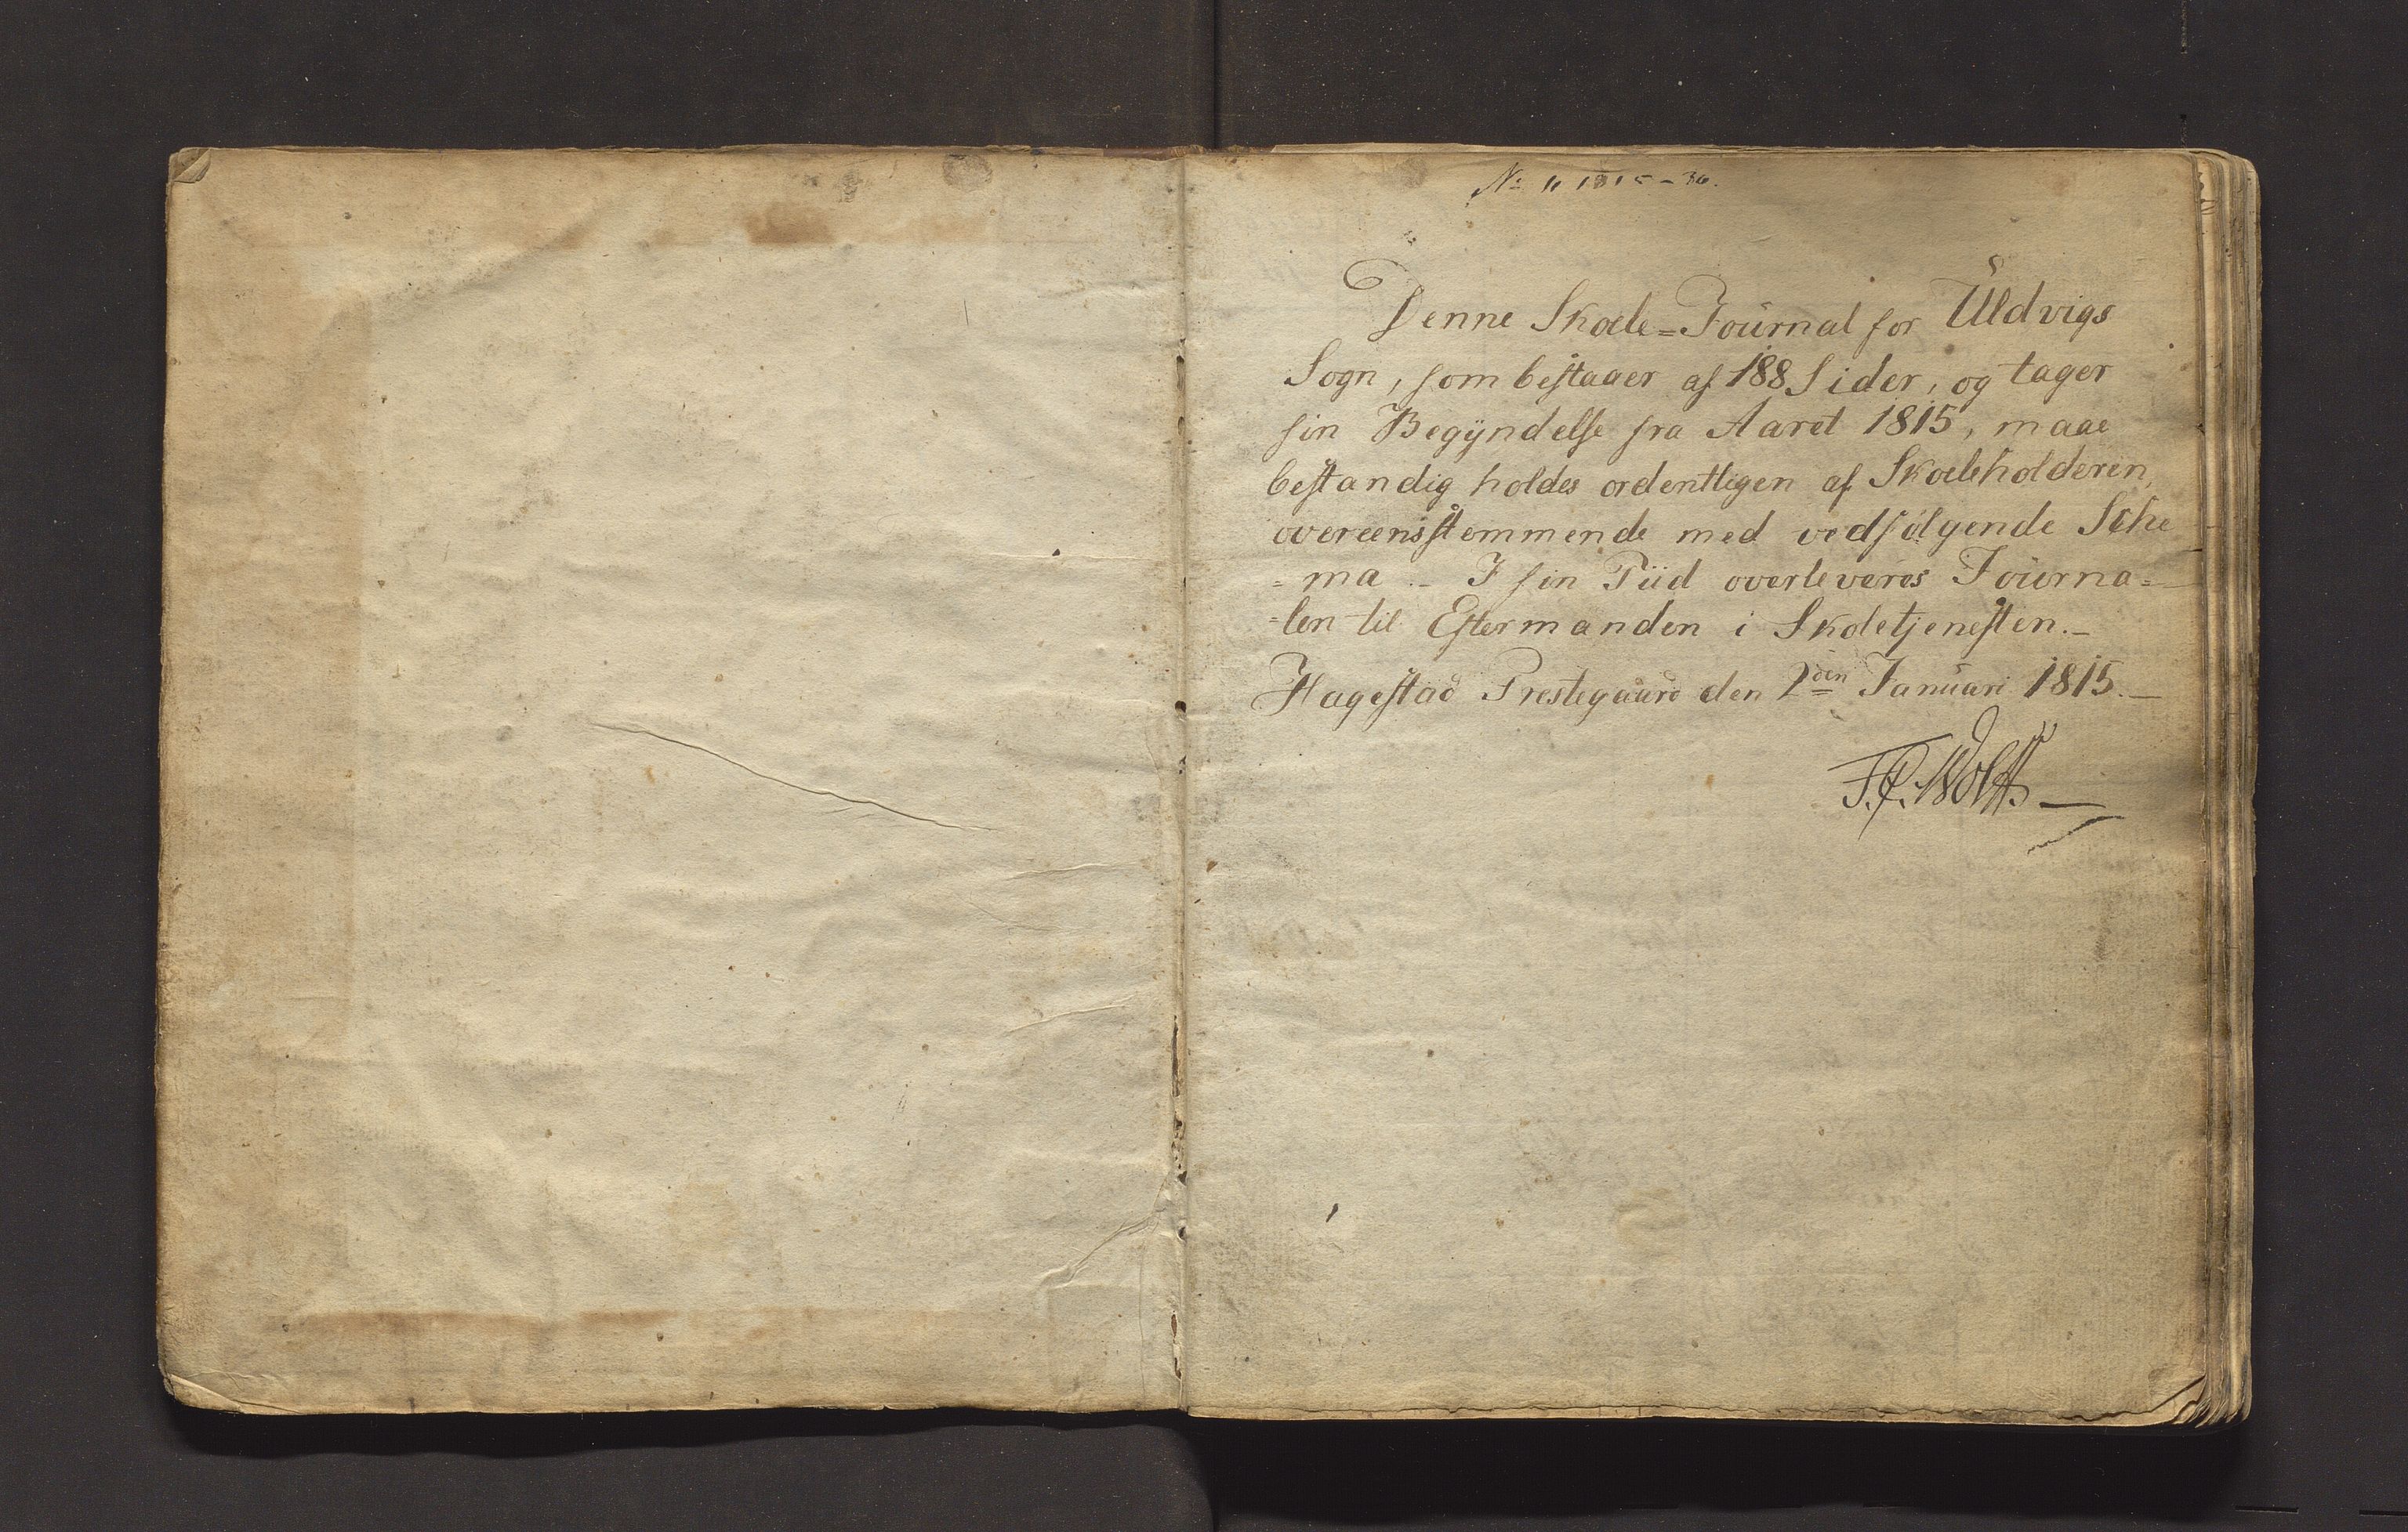 No 1, 1815-36.
Denne Skoele=Journal for Uldvigs
Sogn, som bestaaer af 188 Sider, og tager
sin Begÿndelse fra Aaret 1815, maae
bestandig holdes ordentligen af Skoeleholderen,
overeensstemmende med vedfølgende Sche
=ma._ I sin Tiid overleveres Journa=
=len til Eftermanden i Skoletjenesten._
Hagestad Prestegaard den 2den Januari 1815._
F.C. Wolff._